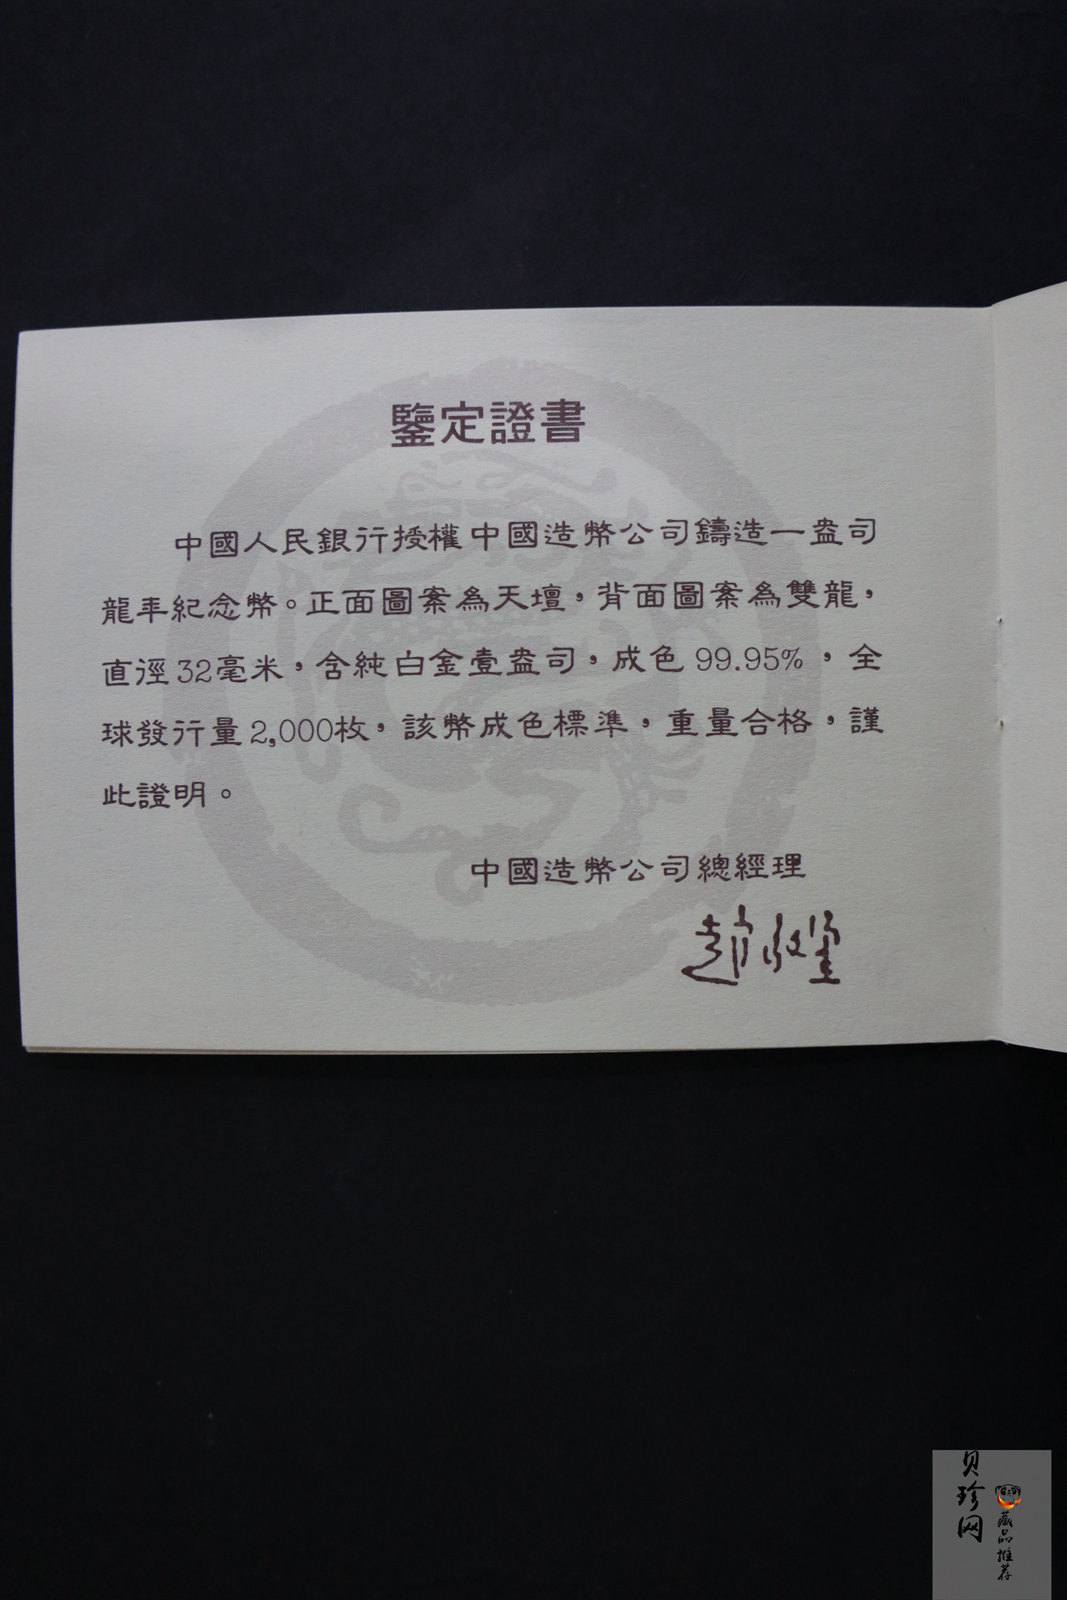 鑒定證書
中國人民銀行授權中國造幣公司鑄造一盎司
龍年紀念幣。正面圖案為天壇，背面圖案為雙龍，
直徑32毫米，含純白金壹盎司，成色99.95%，全
球發行量2,000枚，該幣成色標準，重量合格，謹
此證明。
中國造幣公司總經理
贝珍网
藏品推荐